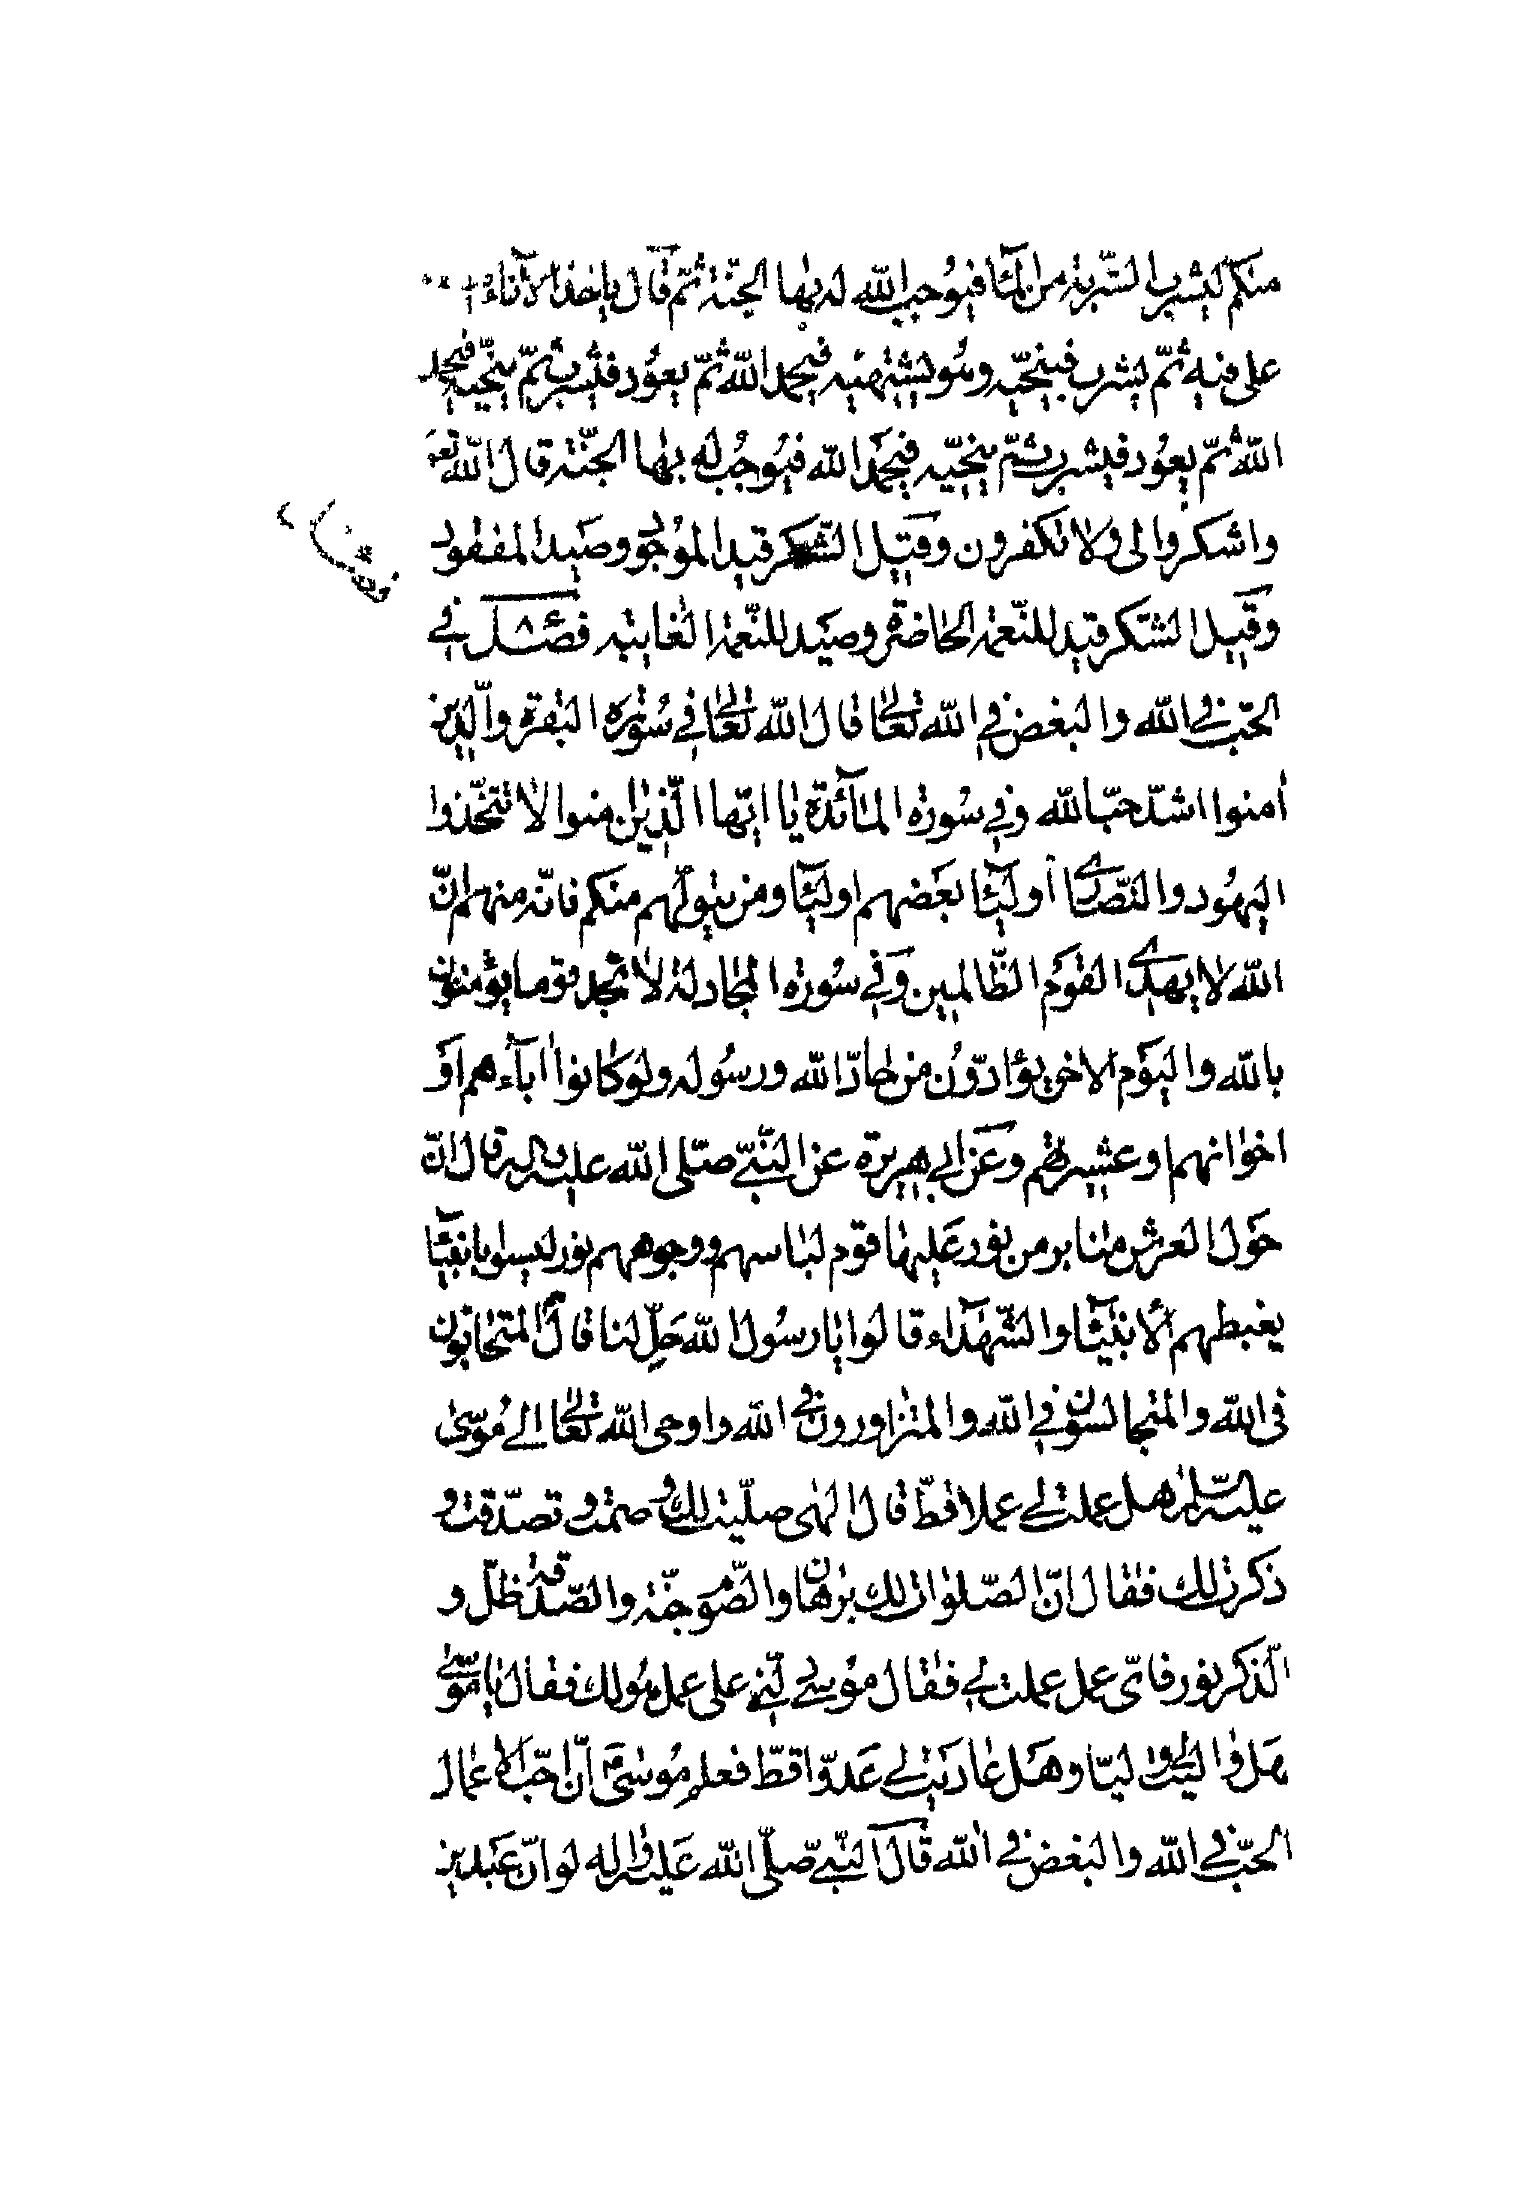 منكم ليشرب الشّربة من المآء فيوُجب الله له بها الجنّة ثمّ قال ياخذ الآناء
على فيه ثمّ يشرب فينحّيه وهُو يشتهيه فيحمد الله ثمّ يعوُد فيشرب ثمّ ينحّيه فيحمد
الله ثمّ يعوُد فيشرب ثمّ ينحّيه فيحمَد الله فيُوجُب له بها الجنّة قال الله تعَ
واشكروا لى ولا تكفرون وقيل الشّكر قيد الموُجود وصَيد المفقود
وقيل الشّكر قيد للنّعمة الحاضرة وصَيد للنّعمة الغايبة فصل في
الحبّ في الله والبغض في الله تعالى قال الله تعَالى في سُورة البقرة والّذين
أمنوا اشدّ حبّا لله وفي سُورة المآئدة يا ايّها الّذين امنوا لا تتّخذوا
اليهُود والنّصارى أوليآء بعَضهم اوليآء ومن يتولّهم منكم فانّه منهم انّ
الله لا يهدى القوَم الظّالمين وَفي سُورة المجادلة لا تجد قوما يؤمنون
بالله واليوَم الاخر يوادّوُن من حادّ الله ورسُوله ولو كانوا اباءهم اوَ
اخوانهم او عشيرتهم وعَن ابي هريرة عن النّبّي صلّى الله عليه واله قال انّ
حَول العرش منابر من نور عَليها قوم لباسهم ووجوههم نور ليسوا بانبيآء
يغبطهم الأنبيآء والشّهدآء قالوا يا رسُول الله حَلِّ لنا قال المتحابّون
فى الله والمتجالسون في الله والمتزاورون في الله واوحى الله تعالى الى مُوسىٰ
عليه السّلم هل عملت لي عملا قطّ قال الهٰى صليّت لك وصمت وتصدّقت و
ذكرت لك فقال انّ الصّلوات لك برهان والصَّوم جنّة والصّدقة ظلّ و
الذّكر نور فاىّ عمل عملت لي فقال موُسى دلّني على عمل هُو لك فقال يا مُوسىٰ
هَل واليت لي وليّا وهَل عاديت لي عَدوّا قطّ فعلم مُوسىٰ انّ احبّ الاعمال
الحبّ في الله والبغض في الله قال النّبّي صلّى الله عَليه واله لو انّ عَبدين